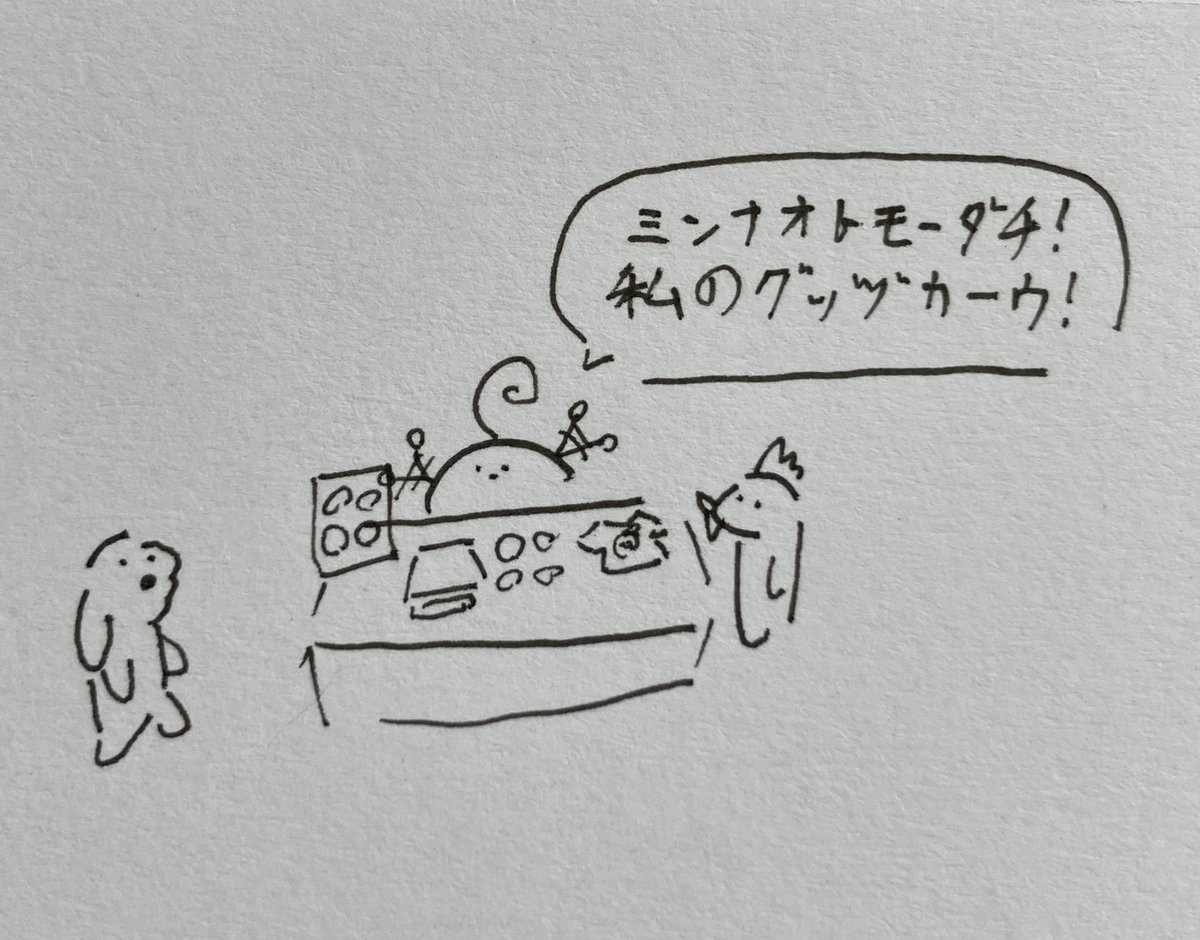 ミンナオトモーダチ!
私のグッヅカーウ!